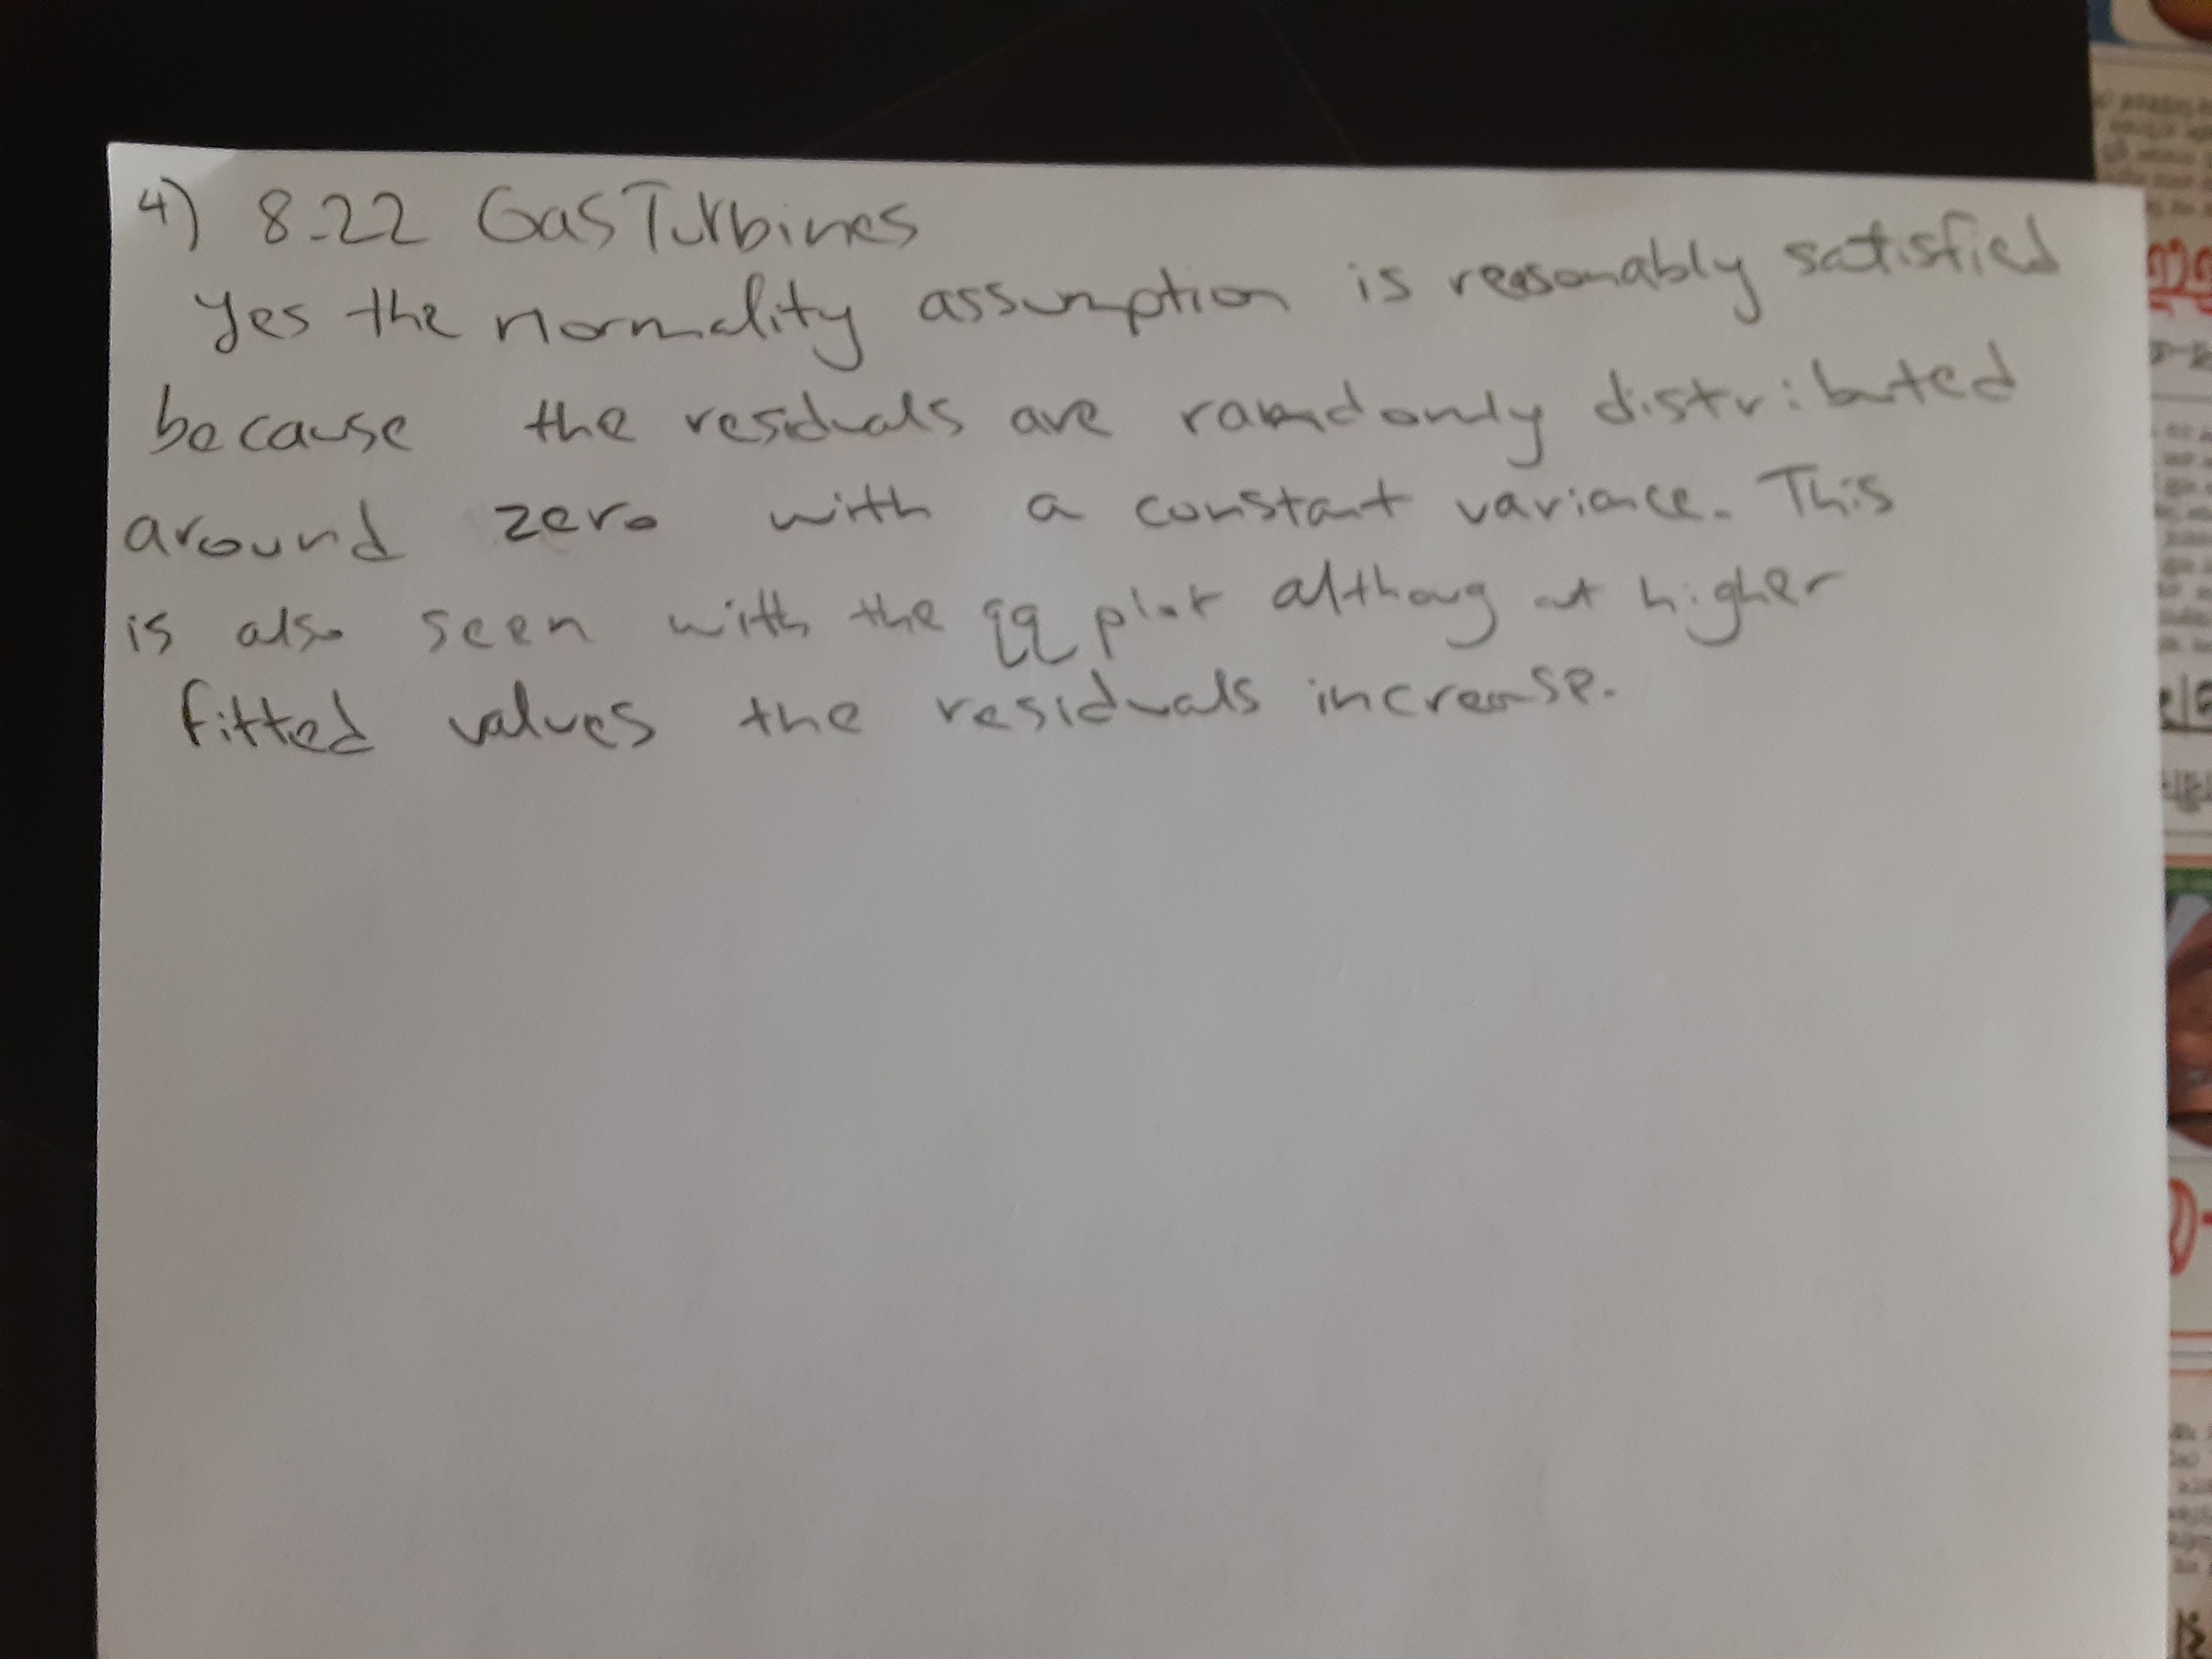 4) 8.22 Gas Turbines
Yes the normality assumption is reasonably satisfied
because the residuals are ramdomly distributed
around zero with a constant variance. This
is also seen with the qq plot althoug at higher
fitted values the residuals increase.